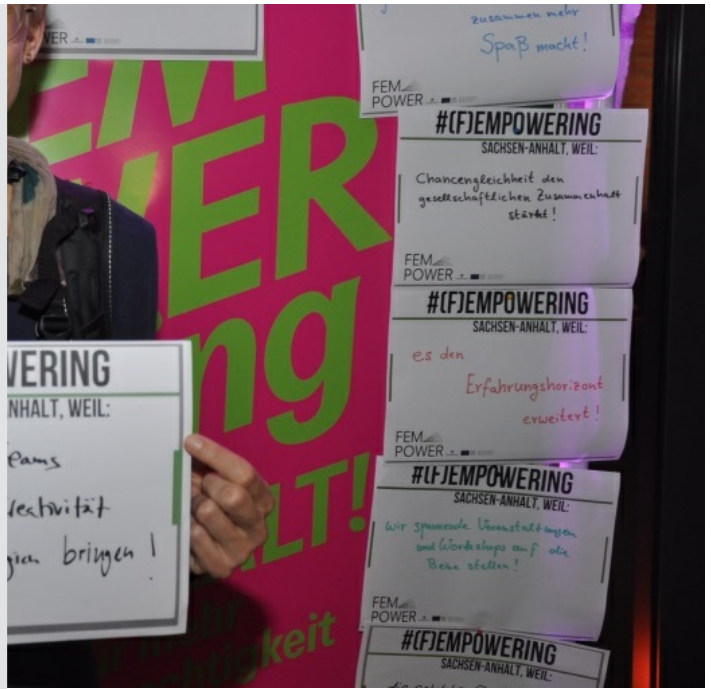 VER
EM
WER
ng
ALT!
mehr
keit
WERING
NHALT, WEIL:
eams
reativität
bringen!
zusammen mehr
Spaß macht!
FEM
POWER
#(F)EMPOWERING
SACHSEN-ANHALT, WEIL:
Chancengleichheit den
gesellschaftlichen Zusammenhalt
stärkt!
FEM
POWER
#(F)EMPOWERING
SACHSEN-ANHALT, WEIL:
es den
Erfahrungshorizont
erweitert!
FEM
POWER
#(F)EMPOWERING
SACHSEN-ANHALT, WEIL:
wir spannende Veranstaltungen
und Workshops auf die
Beine stellen!
FEM
POWER
#(F)EMPOWERING
SACHSEN-ANHALT, WEIL: